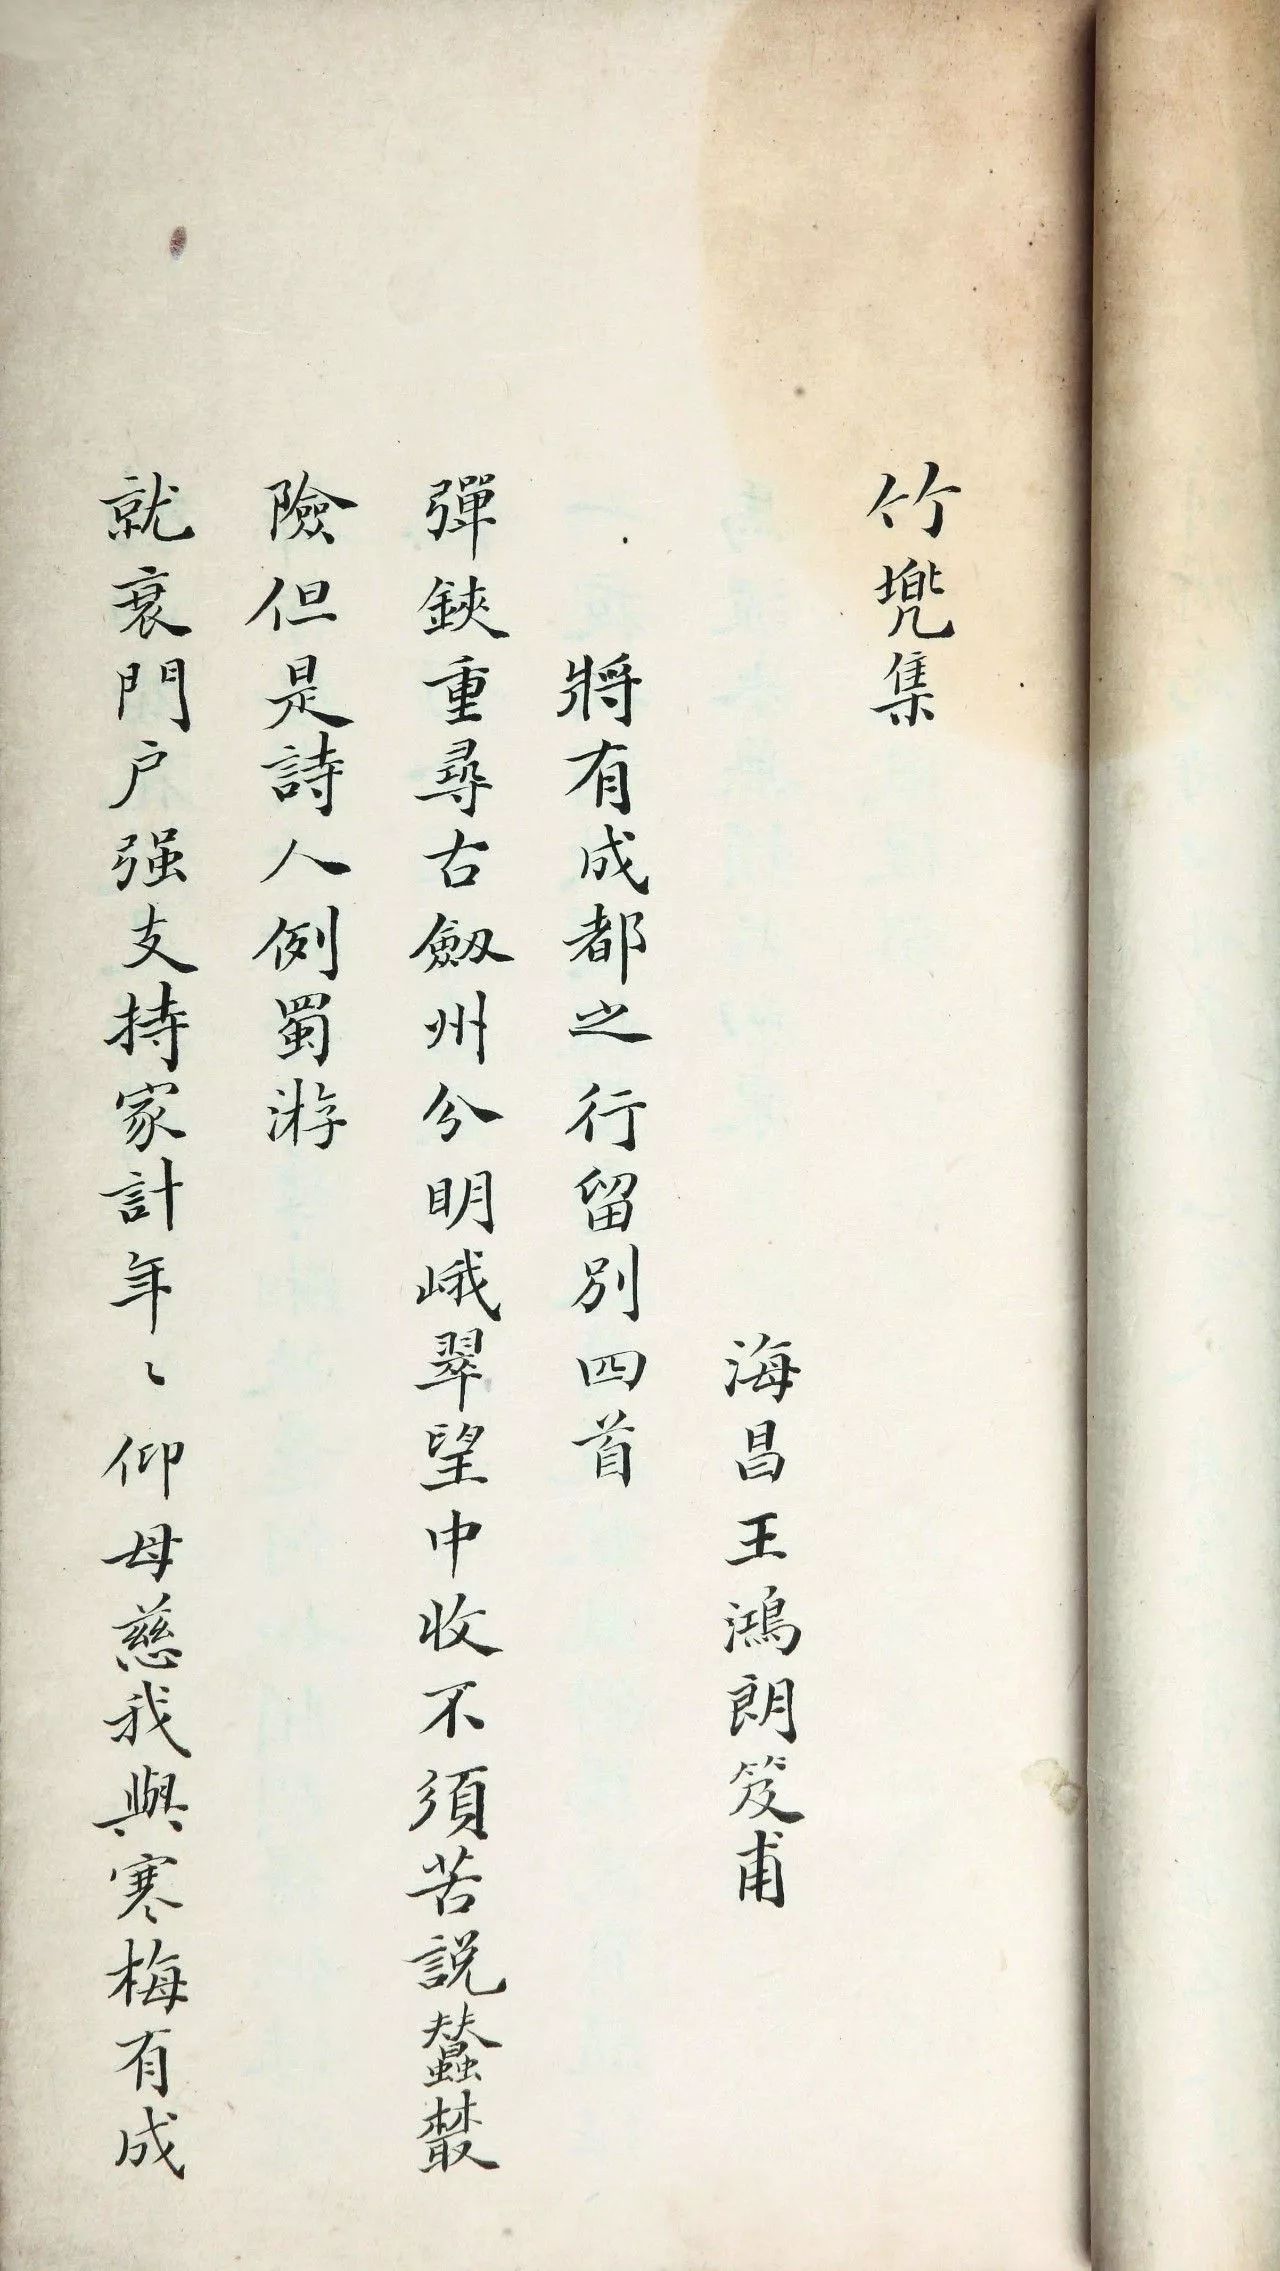 竹兠集
海昌王鴻朗笈甫
將有成都之行留別四首
彈鋏重尋古劔州分明峨翠望中收不須苦説蠶叢
險但是詩人例蜀游
就衰門户强支持家計年〻仰母慈我與寒梅有成